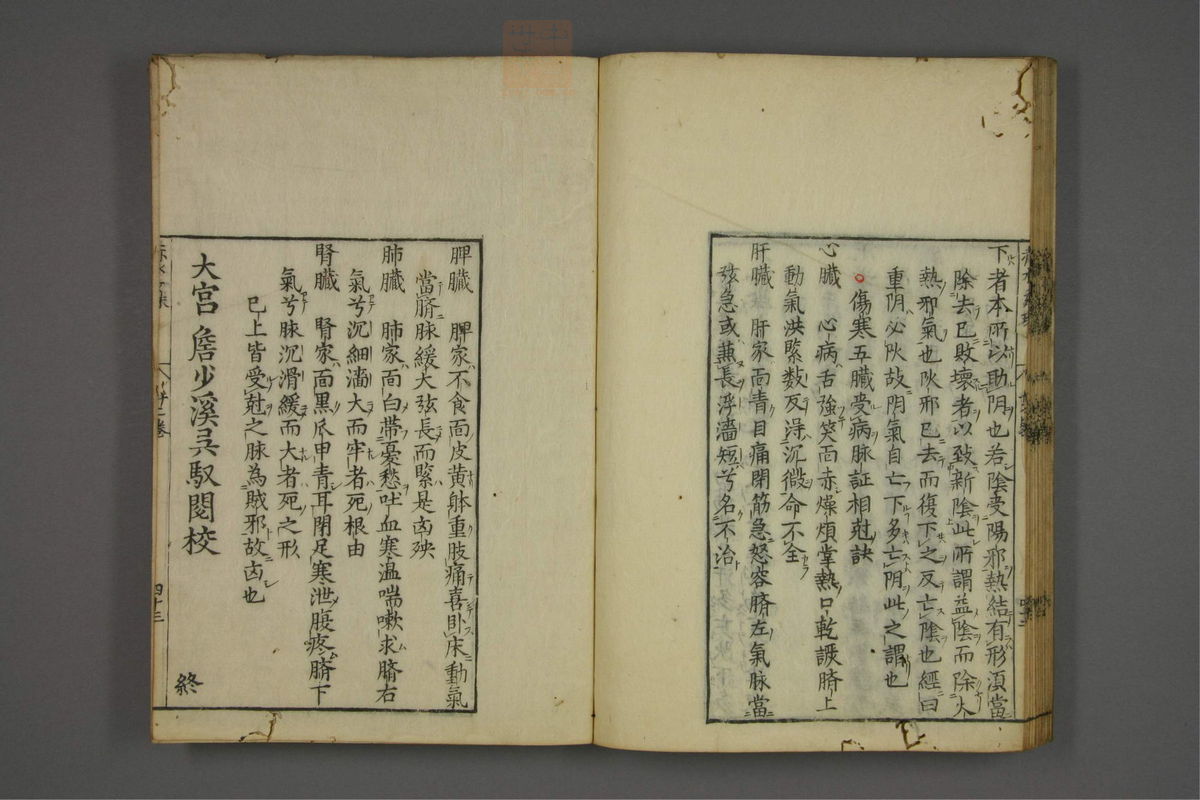 下者本所以助阴也若陰受陽邪熱結有形湏當
除去已敗壞者以致新陰此所謂益陰而除火
熱邪氣也阦邪已去而復下之反亡陰也經曰
重阴必阦故阴氣自亡下多亡阴此之謂也
傷寒五臓受病脉証相尅訣
心臓 心病舌強笑而赤燥煩掌熱口乾讝臍上
動氣洪緊数反浔沉微命不全
肝臓 肝家面青目痛閉筋急怒容臍左氣脉當
弦急或蒹長浮濇短兮名不治
脾臓 脾家不食面皮黄躰重肢痛喜卧床動氣
當臍脉緩大弦長而緊是凶殃
肺臓 肺家面白帶憂愁吐血寒温喘嗽求臍右
氣兮沉細濇大而牢者死根由
腎臓 腎家面黒爪甲青耳閉足寒泄腹疼臍下
氣兮脉沉滑緩而大者死之形
已上皆受尅之脉為賊邪故凶也
大宫 詹少溪呉馭閲校
四十三
終